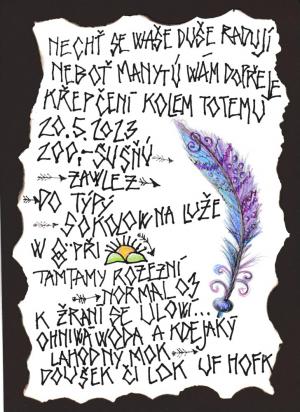 NECHŤ SE WAŠE DUŠE RADUJÍ
NEBOŤ MANYTÚ WÁM DOPŘEJE
KŘEPČENÍ KOLEM TOTEMU
20.5.2023
200,- SUŠŇŮ
ZAWLEZ
DO TÝPÍ
SOKOLOW NA LUŽE
W 8 PŘI
TAMTAMY ROZEZNÍ
NORMAL 03
K ŽRANÍ SE ULOWÍ...
OHNIWÁ WODA A KDEJAKÝ
LAHODNÝ MOK
DOUŠEK ČI LOK UF HOFK